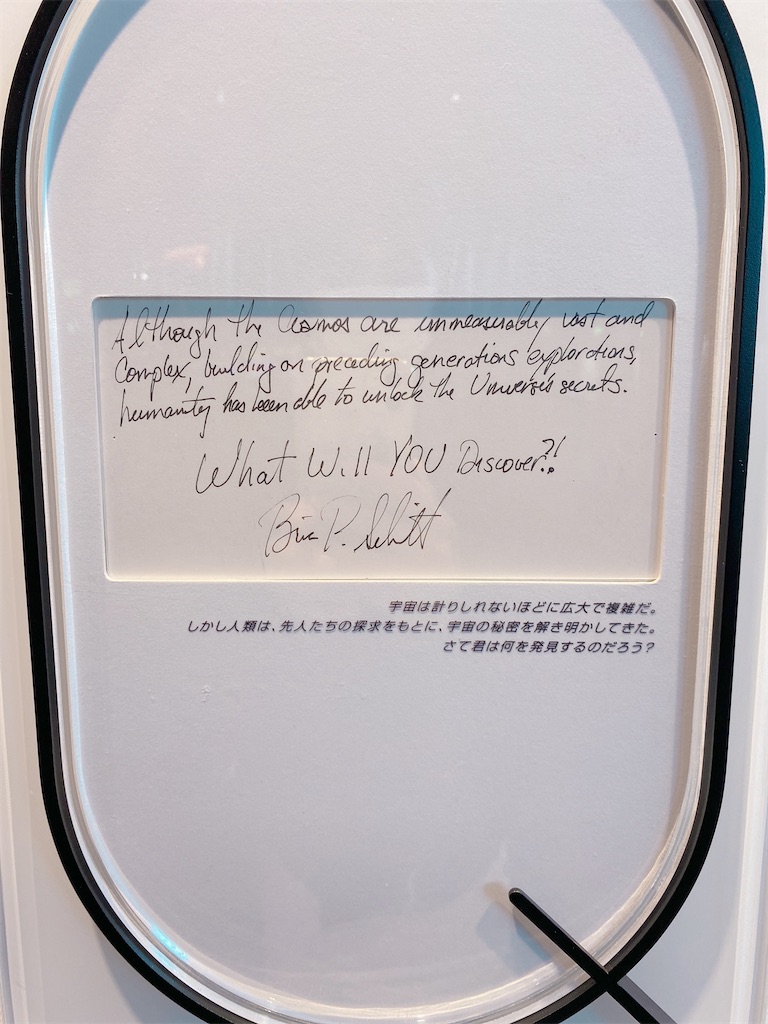 Although the Cosmos are immeasurably vast and
Complex, building on preceding generations explorations,
humanity has been able to unlock the Universe's secrets.
What Will YOU Discover?!
Brian P. Schmidt
宇宙は計りしれないほどに広大で複雑だ。
しかし人類は、先人たちの探求をもとに、宇宙の秘密を解き明かしてきた。
さて君は何を発見するのだろう?